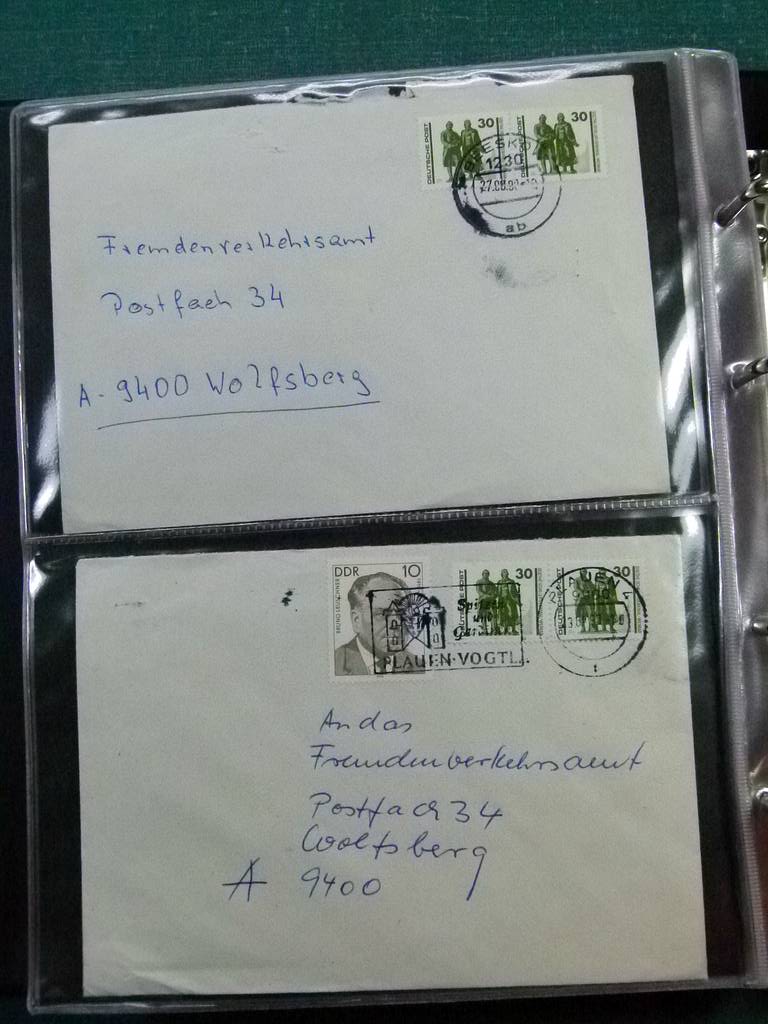 DEUTSCHE POST 30
30
BEESKOW
1230
ab
Fremdenverkehrsamt
Postfach 34
A - 9400 Wolfsberg
DDR 10
BRUNO LEUSCHNER
DEUTSCHE POST 30
DEUTSCHE POST 30
Spitzen
und
PLAUEN-VOGTL.
PLAUEN
An das
Fremdenverkehrsamt
Postfach 34
Wolfsberg
A 9400